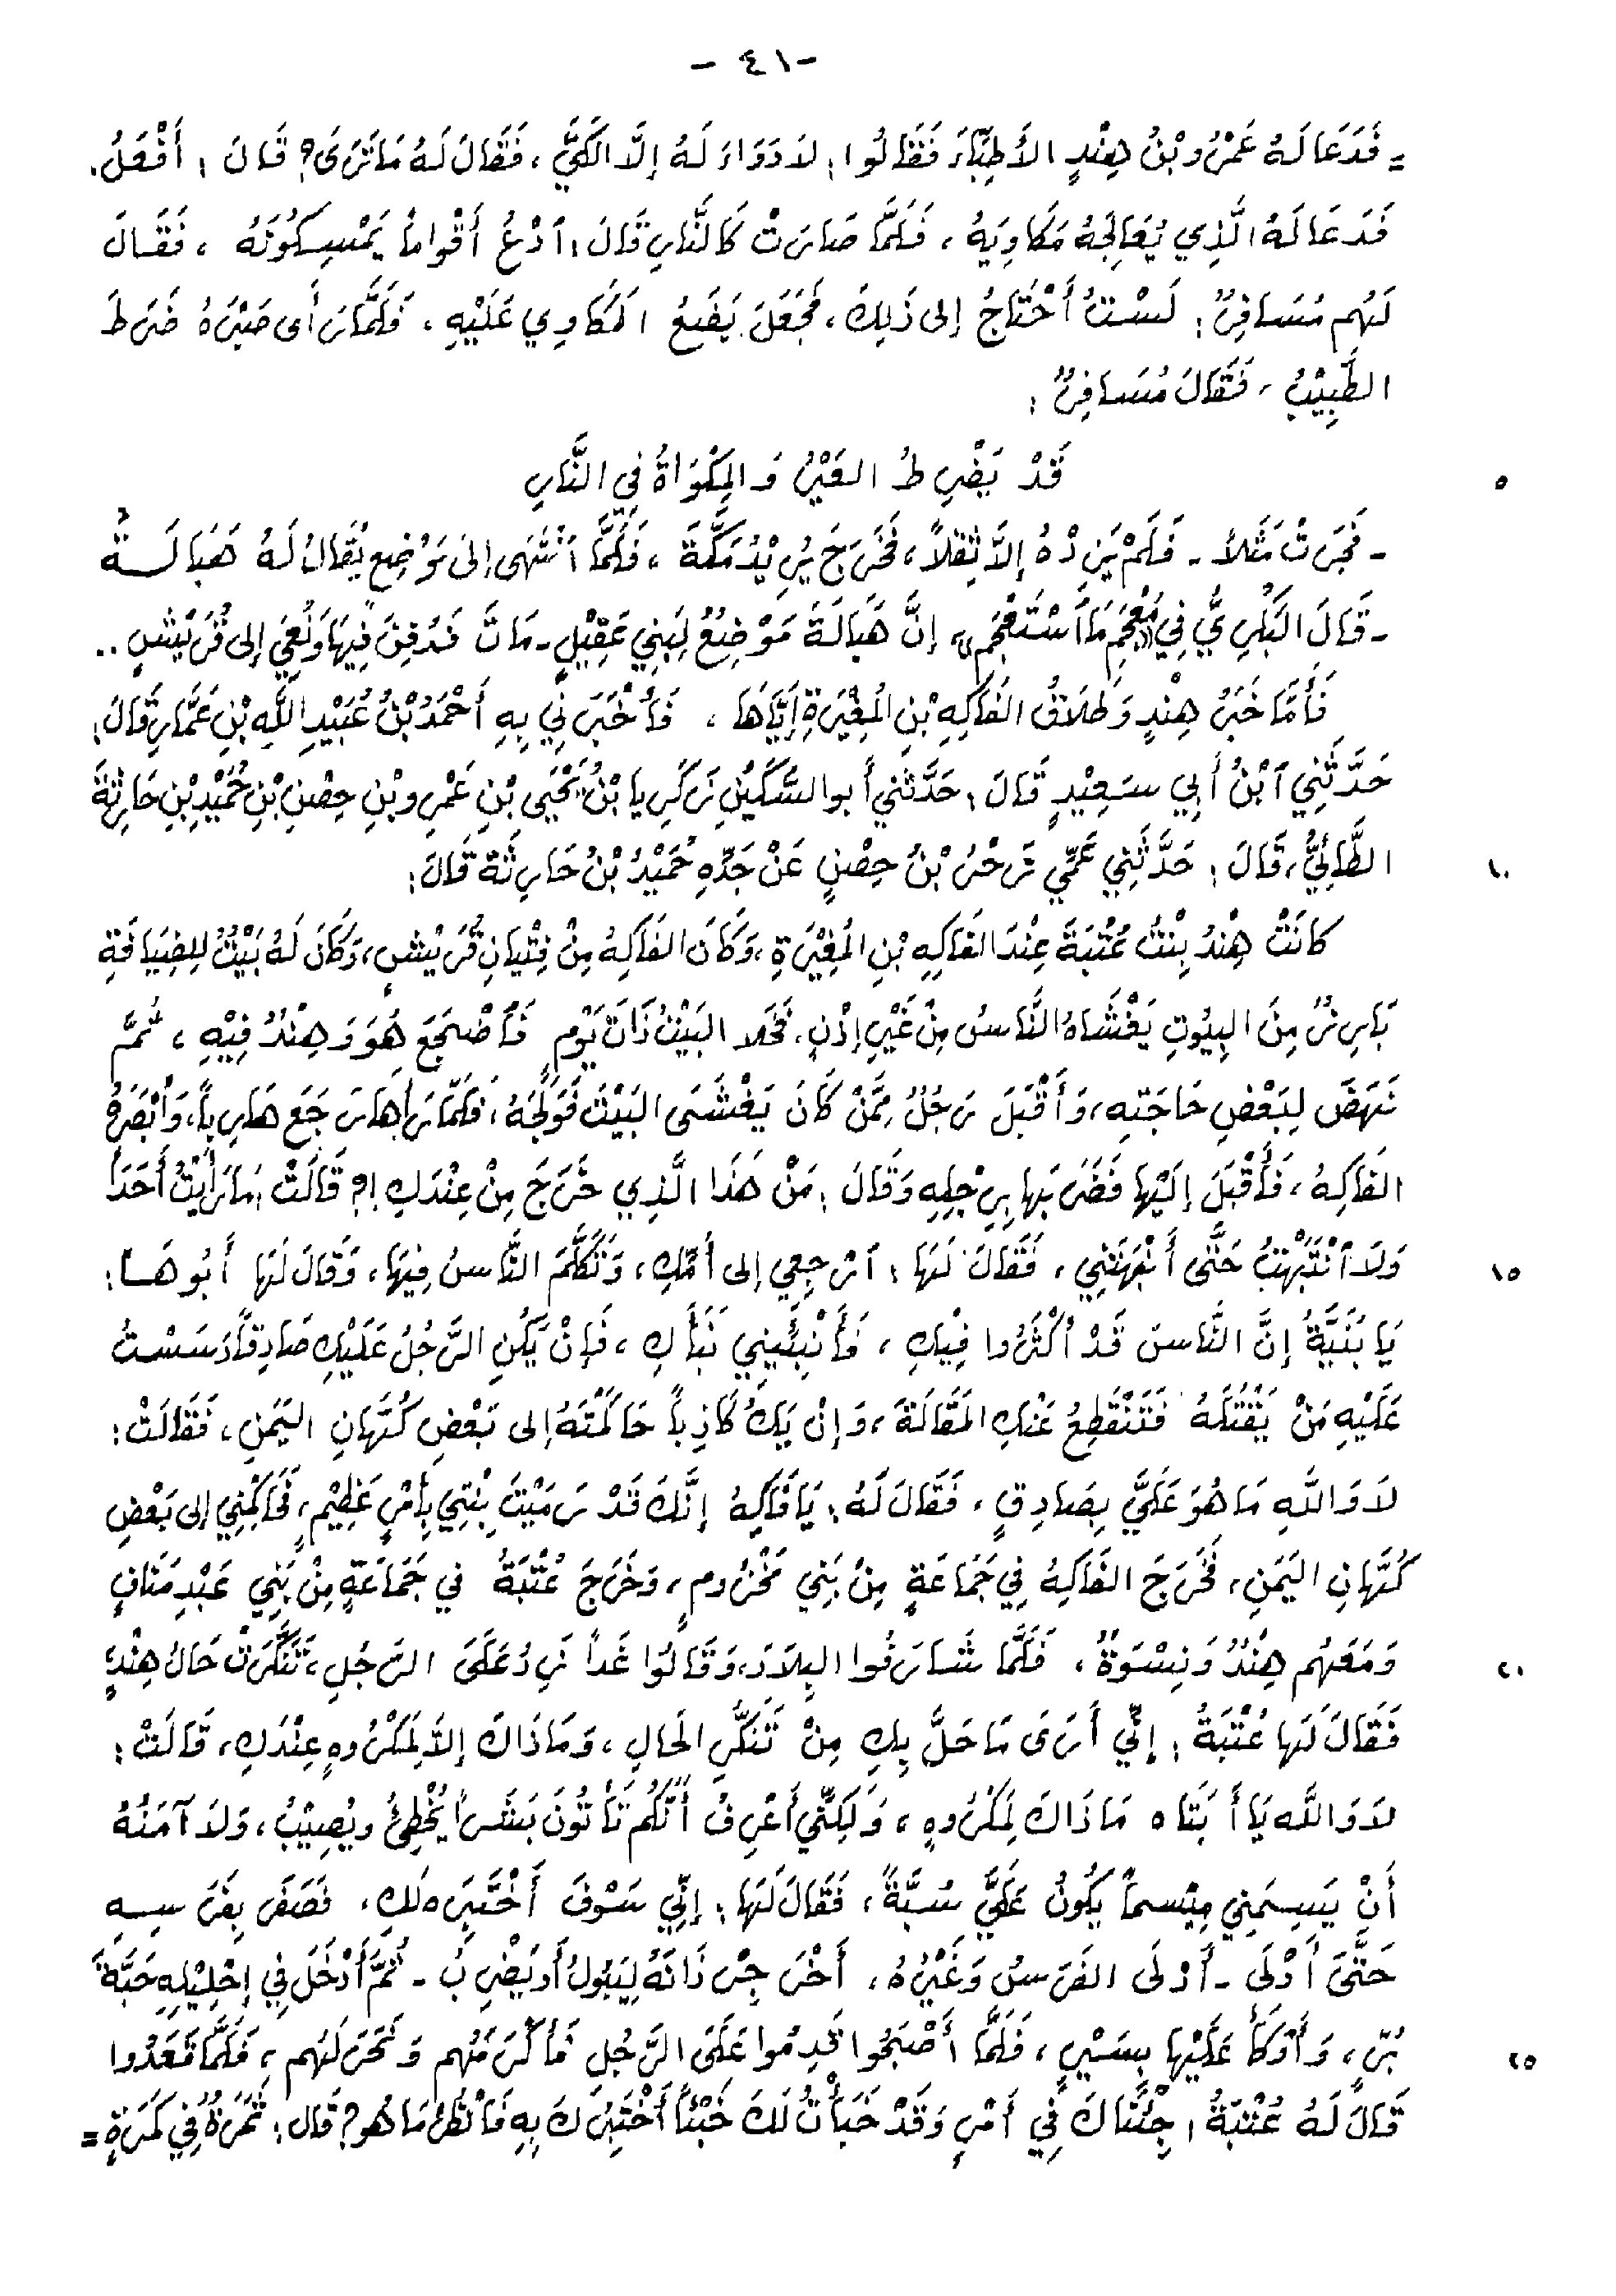 - ٤١ -
= فَدَعَا لَهُ عَمْرُو بْنُ هِنْدٍ الأَطِبَّاءَ فَقَالُوا: لاَ دَوَاءَ لَهُ إلَّا الكَيُّ، فَقَالَ لَهُ مَا تَرَى؟ قَالَ: أَفْعَلُ.
فَدَعَا لَهُ الَّذِي يُعَالِجُهُ مَكَاوِيَهُ، فَلَمَّا صَارَتْ كَالنَّارِ قَالَ: ٱدْعُ أَقْوَاماً يَمْسِكُونَهُ، فَقَالَ
لَهُم مُسَافِرٌ: لَسْتُ أَحْتَاجُ إلى ذَلِكَ، فَجَعَلَ يَضَعُ المَكَاوِي عَلَيْهِ، فَلَمَّا رَأَى صَبْرَهُ ضَرَطَ
الطَّبِيْبُ، فَقَالَ مُسَافِرٌ:
قَدْ يَضْرِطُ العَيْرُ وَالمِكْوَاةُ فِي النَّارِ
٥
- فَجَرَتْ مَثَلاً - فَلَمْ يَزِدْهُ إلاَّ ثِقَلاً، فَخَرَجَ يُرِيْدُ مَكَّةَ، فَلَمَّا ٱنْتَهَى إلى مَوْضِعٍ يُقَالُ لَهُ هَبَالَةُ
- قَالَ البَكْرِيُّ فِي «مُعْجَمِ مَا ٱسْتَعْجَمَ» إنَّ هَبَالَةَ مَوْضِعٌ لِبَنِي عَقِيْلٍ - مَاتَ فَدُفِنَ فِيْهَا وَنُعِيَ إلى قُرَيْشٍ..
فَأَمَّا خَبَرُ هِنْدٍ وَطَلاَقُ الفَاكِهِ بْنِ المُغِيْرَةِ إيَّاهَا، فَأَخْبَرَنِي بِهِ أَحْمَدُ بْنُ عُبَيْدِ اللَّهِ بْنِ عَمَّارٍ قَالَ:
حَدَّثَنِي ٱبْنُ أَبِي سَعِيْدٍ قَالَ: حَدَّثَنِي أَبو السُّكَيْنِ زَكَرِيا بْنُ يَحْيَى بْنِ عَمْرِو بْنِ حِصْنِ بْنِ حُمَيْدِ بْنِ حَارِثَةَ
الطَّائِيُّ، قَالَ: حَدَّثَنِي عَمِّي زَحْرُ بْنُ حِصْنٍ عَنْ جَدِّهِ حُمَيْدُ بْنُ حَارِثَةَ قَالَ:
١٠
كَانَتْ هِنْدُ بِنْتُ عُتْبَةَ عِنْدَ الفَاكِهِ بْنِ المُغِيْرَةِ، وَكَانَ الفَاكِهُ مِنْ فِتْيَانِ قُرَيْشٍ، وَكَانَ لَهُ بَيْتٌ لِلضِيَافَةِ
بَارِزٌ مِنَ البِيُوتِ يَغْشَاهُ النَّاسُ مِنْ غَيْرِ إذْنٍ، فَخَلا البَيْتُ ذَاتَ يَوْمٍ فَٱضْجَعَ هُوَ وَهِنْدٌ فِيْهِ، ثُمَّ
نَهَضَ لِبَعْضِ حَاجَتِهِ، وَأَقْبَلَ رَجُلٌ مِمَّنْ كَانَ يَغْشَى البَيْتَ فَوَلَجَهُ، فَلَمَّا رَأهَا رَجَعَ هَارِباً، وَأَبْصَرَهُ
الفَاكِهُ، فَأَقْبَلَ إلَيْهَا فَضَرَبَها بِرِجْلِهِ وَقَالَ: مَنْ هَذَا الَّذِي خَرَجَ مِنْ عِنْدَكِ!؟ قَالَتْ: مَا رَأَيْتُ أَحَدَاً
وَلاَ ٱنْتَبَهْتُ حَتَّى أَنْبَهْتَنِي، فَقَالَ لَهَا: ٱرْجِعِي إلى أُمِّكِ، وَتَكَلَّمَ النَّاسُ فِيْهَا، وَقَالَ لَهَا أَبُوهَا:
١٥
يَا بُنَيَّةُ إنَّ النَّاسَ قَدْ أكْثَرُوا فِيْكِ، فَأَنْبِئِيْنِي نَبَأَكِ، فَإنْ يَكُنِ الرَّجُلُ عَلَيْكِ صَادِقَاً دَسَسْتُ
عَلَيْهِ مَنْ يَقْتُلُهُ فَتَنْقَطِعُ عَنْكِ المَقَالَةَ، وَإنْ يَكُ كَاذِبَاً حَاكَمْتَهُ إلى بَعْضِ كُهَّانِ اليَمَنِ، فَقَالَتْ:
لاَ وَاللَّهِ مَا هُوَ عَلَيَّ بِصَادِقٍ، فَقَالَ لَهُ: يَا فَاكِهُ إنَّكَ قَدْ رَمَيْتَ بِنْتِي بِأَمْرٍ عَظِيْمٍ، فَحَاكِمْنِي إلى بَعْضِ
كُهَّانِ اليَمَنِ، فَخَرَجَ الفَاكِهُ فِي جَمَاعَةٍ مِنْ بَنِي مَخْزُومٍ، وَخَرَجَ عُتْبَةُ في جَمَاعَةٍ مِنْ بَنِي عَبْدِ مَنَافٍ
وَمَعَهُم هِنْدُ وَنِسْوَةٌ، فَلَمَّا شَارَفُوا البِلاَدَ، وَقَالُوا غَداً نَرِدُ عَلَى الرَّجُلِ، تَنَكَّرَتْ حَالُ هِنْدٍ،
٢٠
فَقَالَ لَهَا عُتْبَةُ: إنِّي أَرَى مَا حَلَّ بِكِ مِنْ تَنَكُّرِ الحَالِ، وَمَا ذَاكَ إلاَّ لِمَكْرُوهٍ عِنْدَكِ، قَالَتْ:
لاَ وَاللَّهِ يَا أَبَتَاه مَا ذَاكَ لِمَكْرُوهٍ، وَلَكِنِّي أَعْرِفُ أَنَّكُم تَأْتُونَ بَشَراً يُخْطِئُ ويُصِيْبُ، وَلاَ آمَنُهُ
أَنْ يَسِمَنِي مِيْسماً يَكُونُ عَلَيَّ سُبَّةً، فَقَالَ لَهَا: إنِّي سَوْفَ أَخْتَبِرَه لَكِ، فَصَفَرَ بِفَرَسِهِ
حَتَّى أَدْلَى - أَدْلَى الفَرَسُ وَغَيْرُهُ، أَخْرَجَ جرْدَانَهُ لِيَبُولَ أَو يَضْرِبَ - ثُمَّ أَدْخَلَ فِي إحْلِيْلِهِ حَبَّةَ
بُرٍّ، وَأَوْكَأَ عَلَيْهَا بِسَيْرٍ، فَلَمَّا أَصْبَحُوا قَدِمُوا عَلَى الرَّجُلِ فَأَكْرَمَهُم وَنَحَرَ لَهُم، فَلَمَّا قَعَدُوا
٢٥
قَالَ لَهُ عُتْبَةُ: جِئْنَاكَ فِي أَمْرٍ وَقَدْ خَبَأْتُ لَكَ خَبْئَاً أَخْتَبِرُكَ بِهِ فَٱنْظُرْ مَا هُو؟ قَال: ثَمَرَةٌ فِي كَمَرَةٍ =